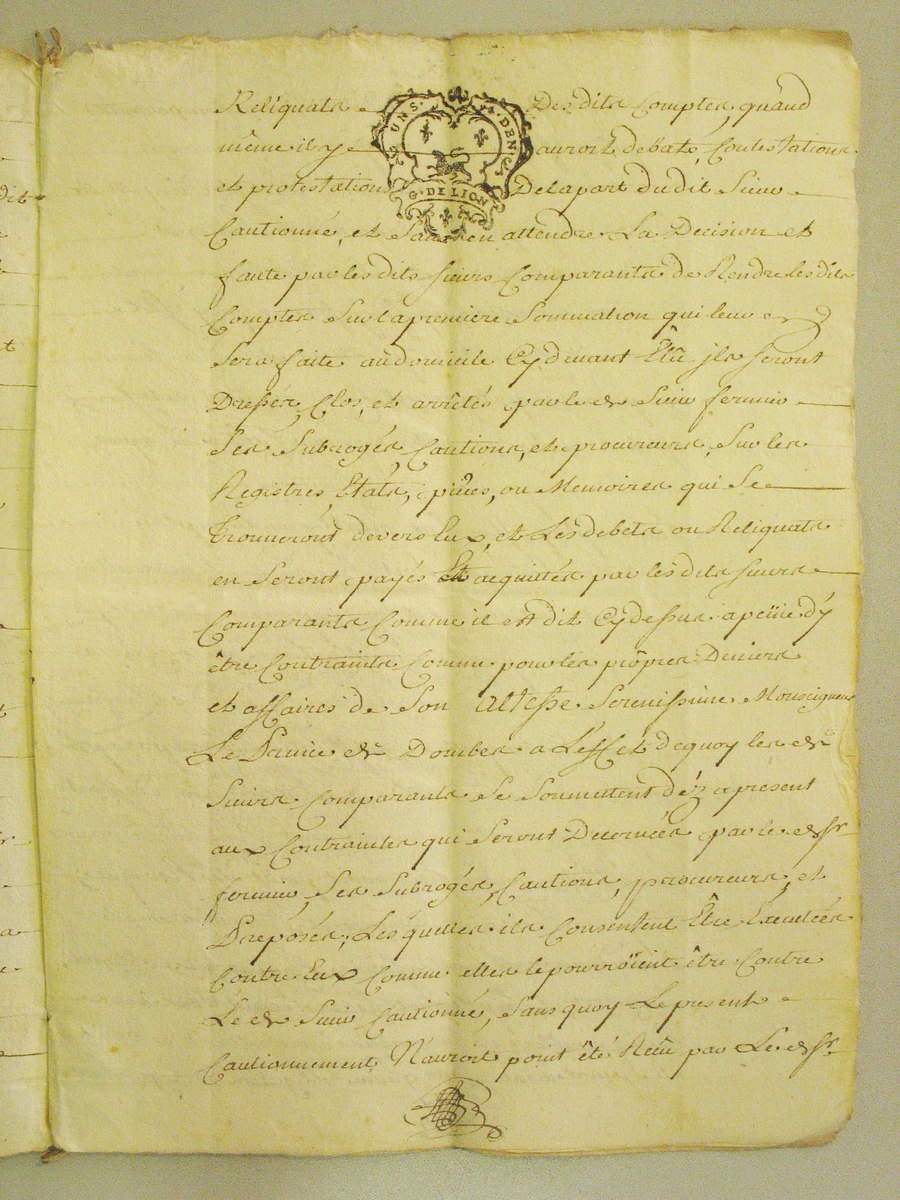 Reliquats Desdits Comptes, quand
même il y auroit debats, Contestations
et protestations De la part du dit Sieur
Cautionné, et Sans en attendre La Decision et
faute par les dits sieurs Comparants de Rendre les dits
Comptes Sur la premiere Sommation qui leur
Sera faite au domicile Cy devant Êlû jls seront
Dressés, Clos, et arrêtés par le d Sieur fermier
Ses Subrogés, Cautions, et procureurs, Sur les
Registres, Etats, pieces, ou Memoires qui Se
trouveront devers Eux, et Les debets ou Reliquats
en Seront payés Et acquittés par les dits sieurs
Comparants Comme il est dit Cy dessus a peine d'y
être Contraints Comme pour les prôpres Deniers
et affaires de Son Altesse Serenissime Monseigneur
Le Prince de Dombes a L'effet dequoy les d
Sieurs Comparants Se Soumettent dés a present
aux Contraintes qui Seront Decernées par le d Sr
fermier, Ses Subrogés, Cautions, procureurs, et
Preposés, Lesquelles ils Consentent Être Executées
Contre Eux Comme elles le pourroïent être Contre
Le d Sieur Cautionné, Sans quoy Le present
Cautionnement N'auroit point êté Reçû par Le d Sr
G. DE LION
UNS. DEN.